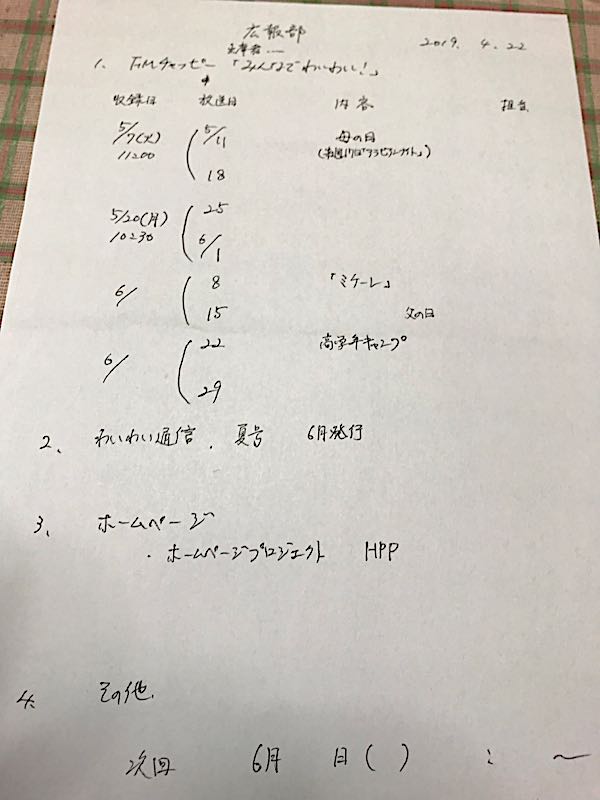 広報部
2019. 4. 22
出席者 ....
1. FMチャッピー「みんなでわいわい!」
収録日 放送日 内容 担当
5/7(火) 5/11 母の日
11:00 18
5/20(月) 25
10:30 6/1
6/ 8 「ミケーレ」
15 父の日
6/ 22 高学年キャンプ
29
2、 わいわい通信. 夏号 6月発行
3、 ホームページ
・ホームページプロジェクト HPP
4、 その他
次回 6月 日( ) : 〜